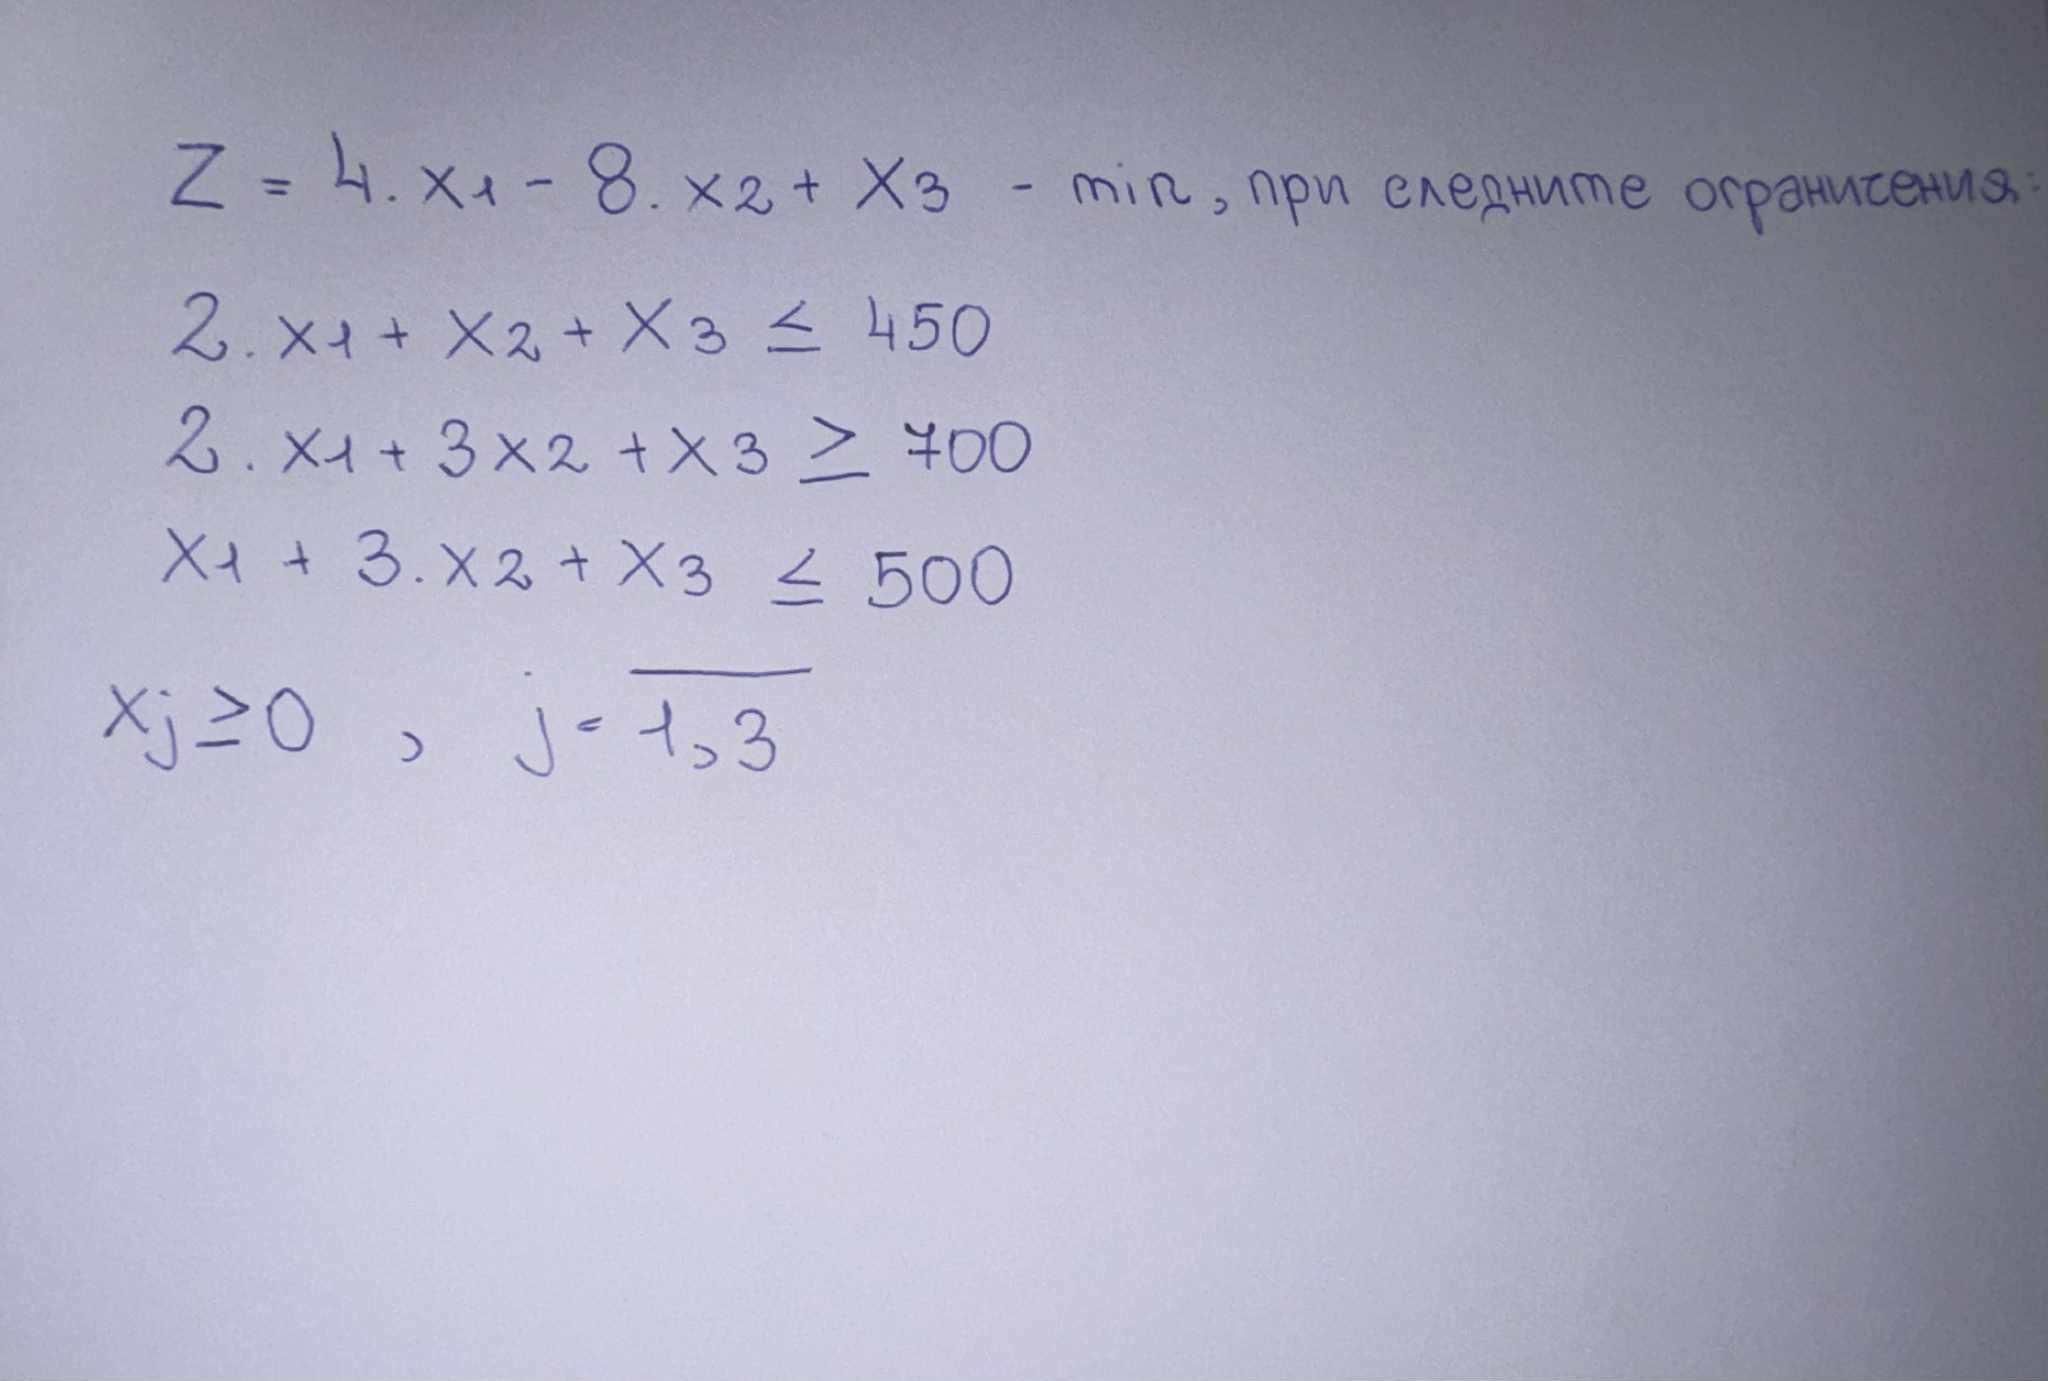 Z = 4. x1 - 8. x2 + x3 - min, при следните ограничения:
2. x1 + x2 + x3 ≤ 450
2. x1 + 3x2 + x3 ≥ 700
x1 + 3. x2 + x3 ≤ 500
xj ≥ 0 , j = 1,3